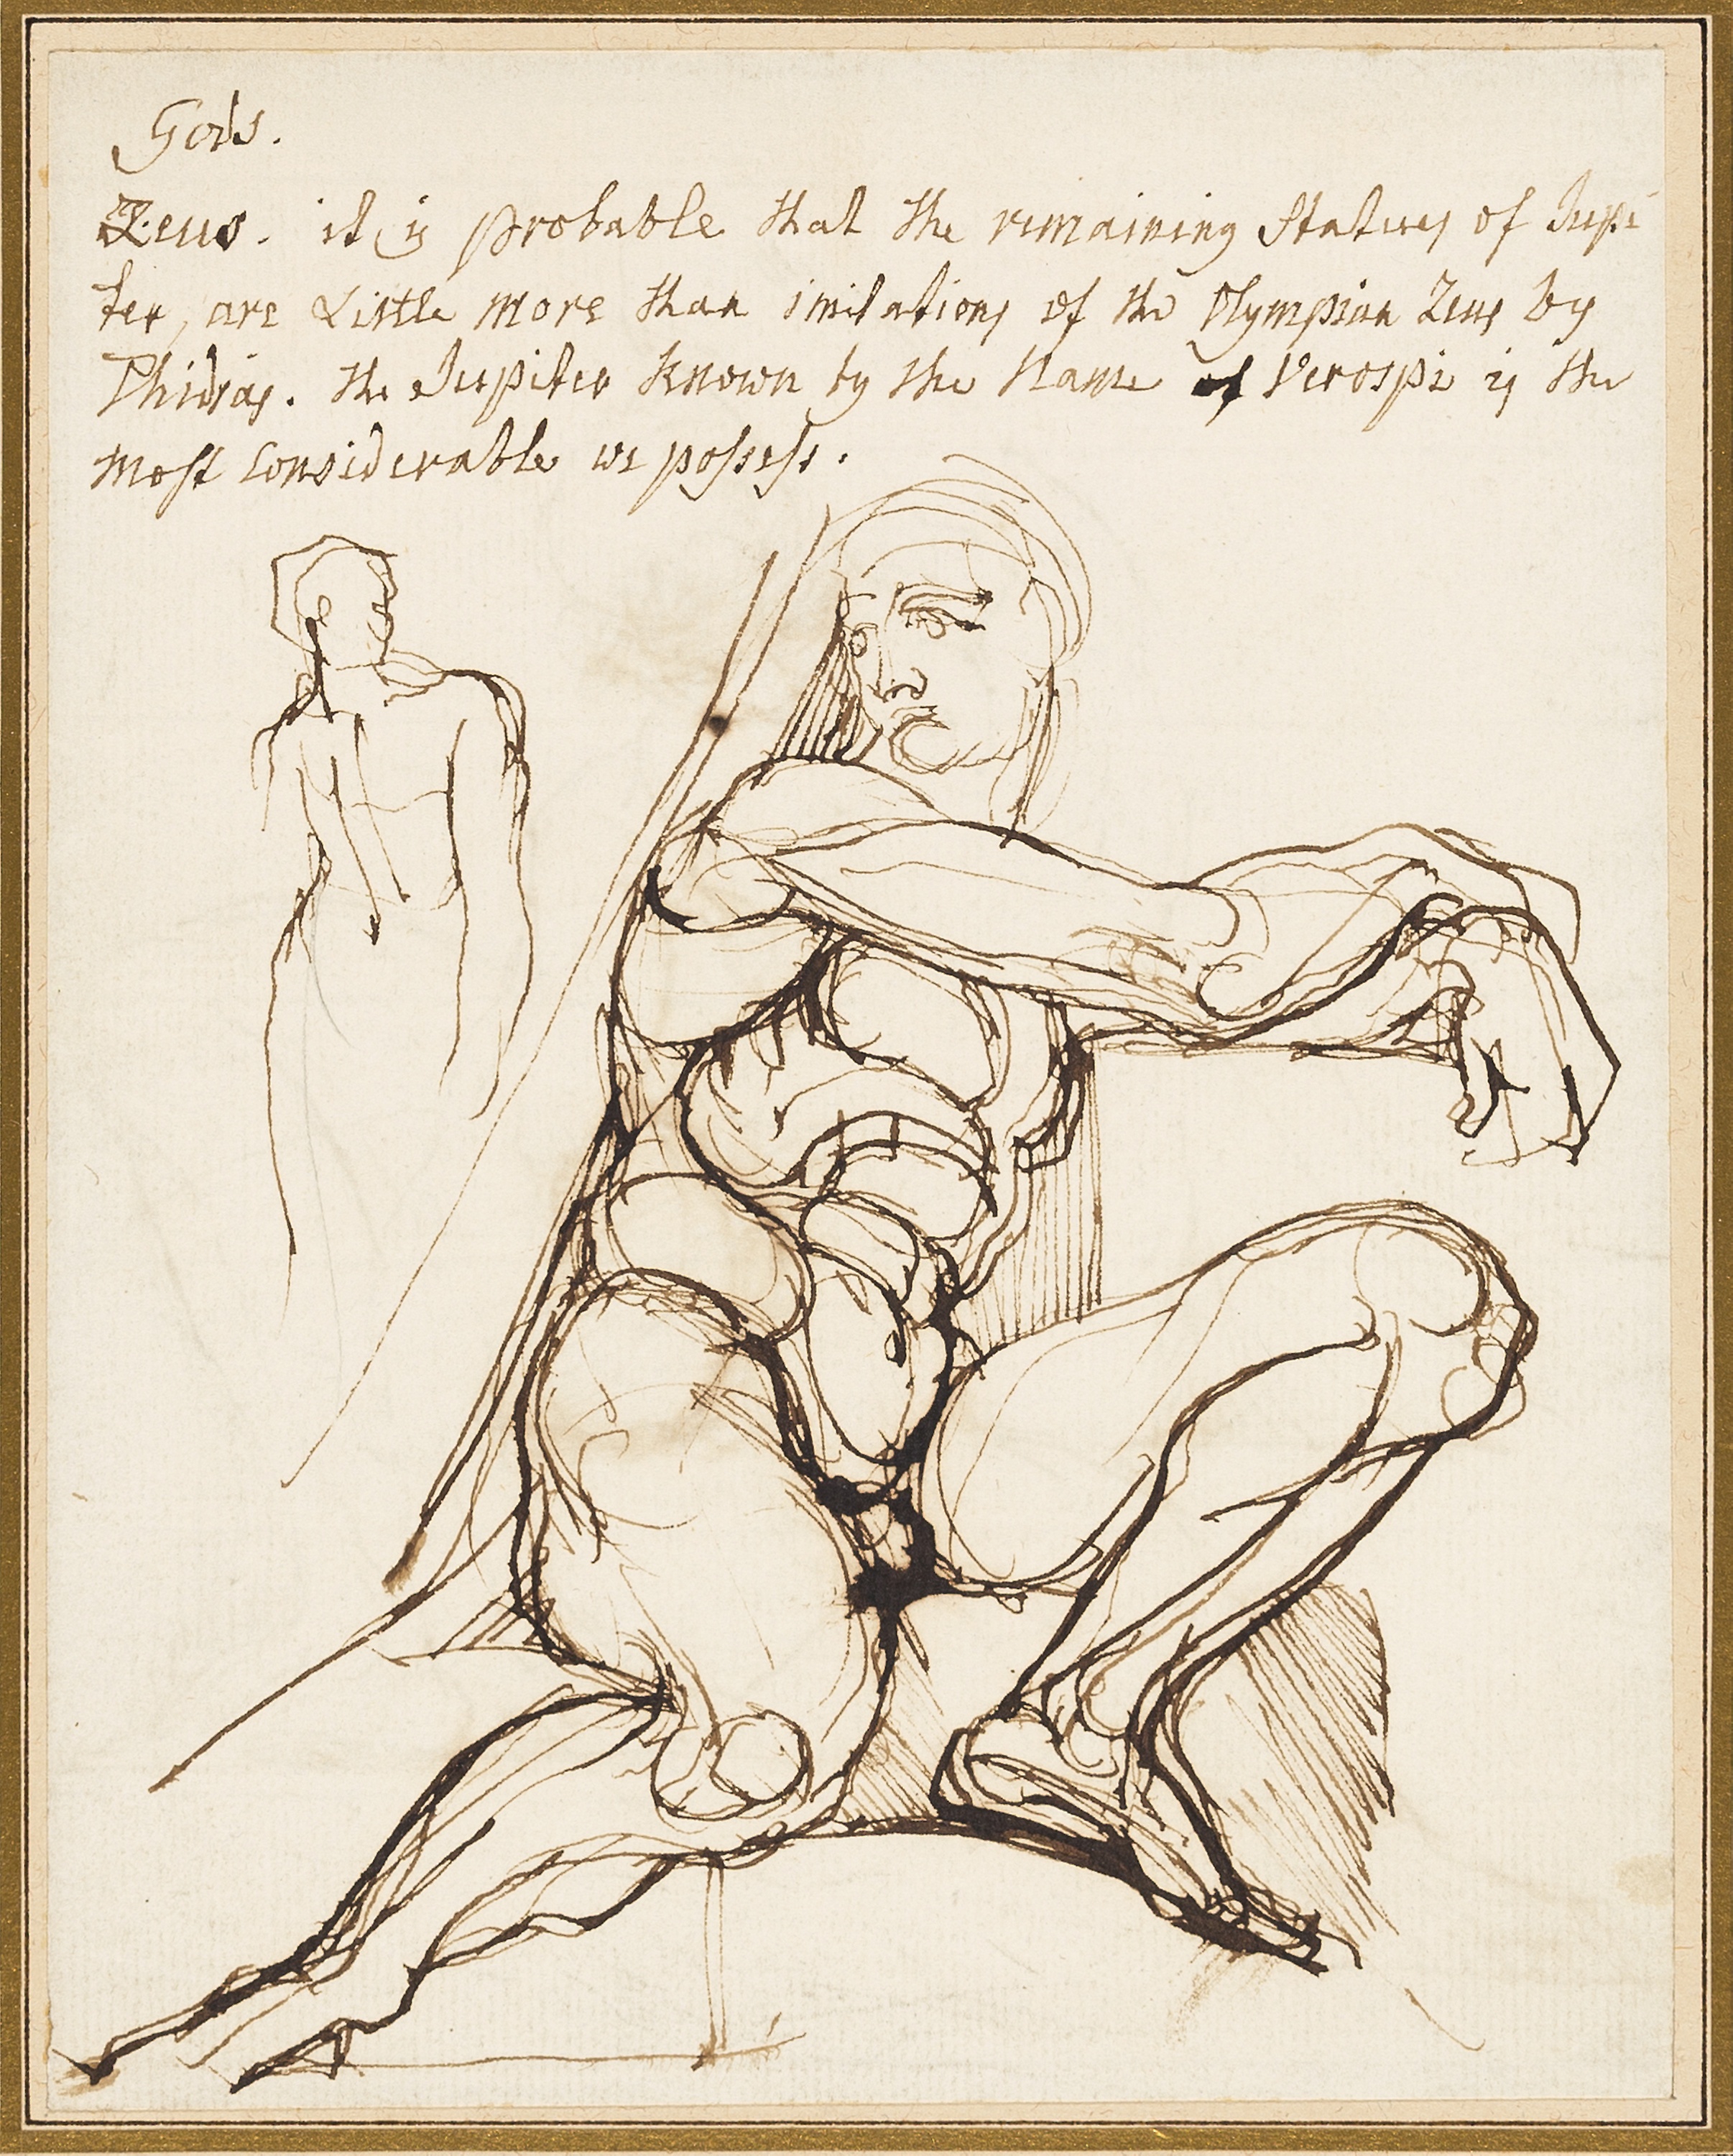 Gods.
Zeus. it is probable that the remaining Statues of Jupi
ter, are Little more than imitations of the Olympian Zeus by
Phidias. the Jupiter known by the Name of Verospi is the
most considerable we possess.